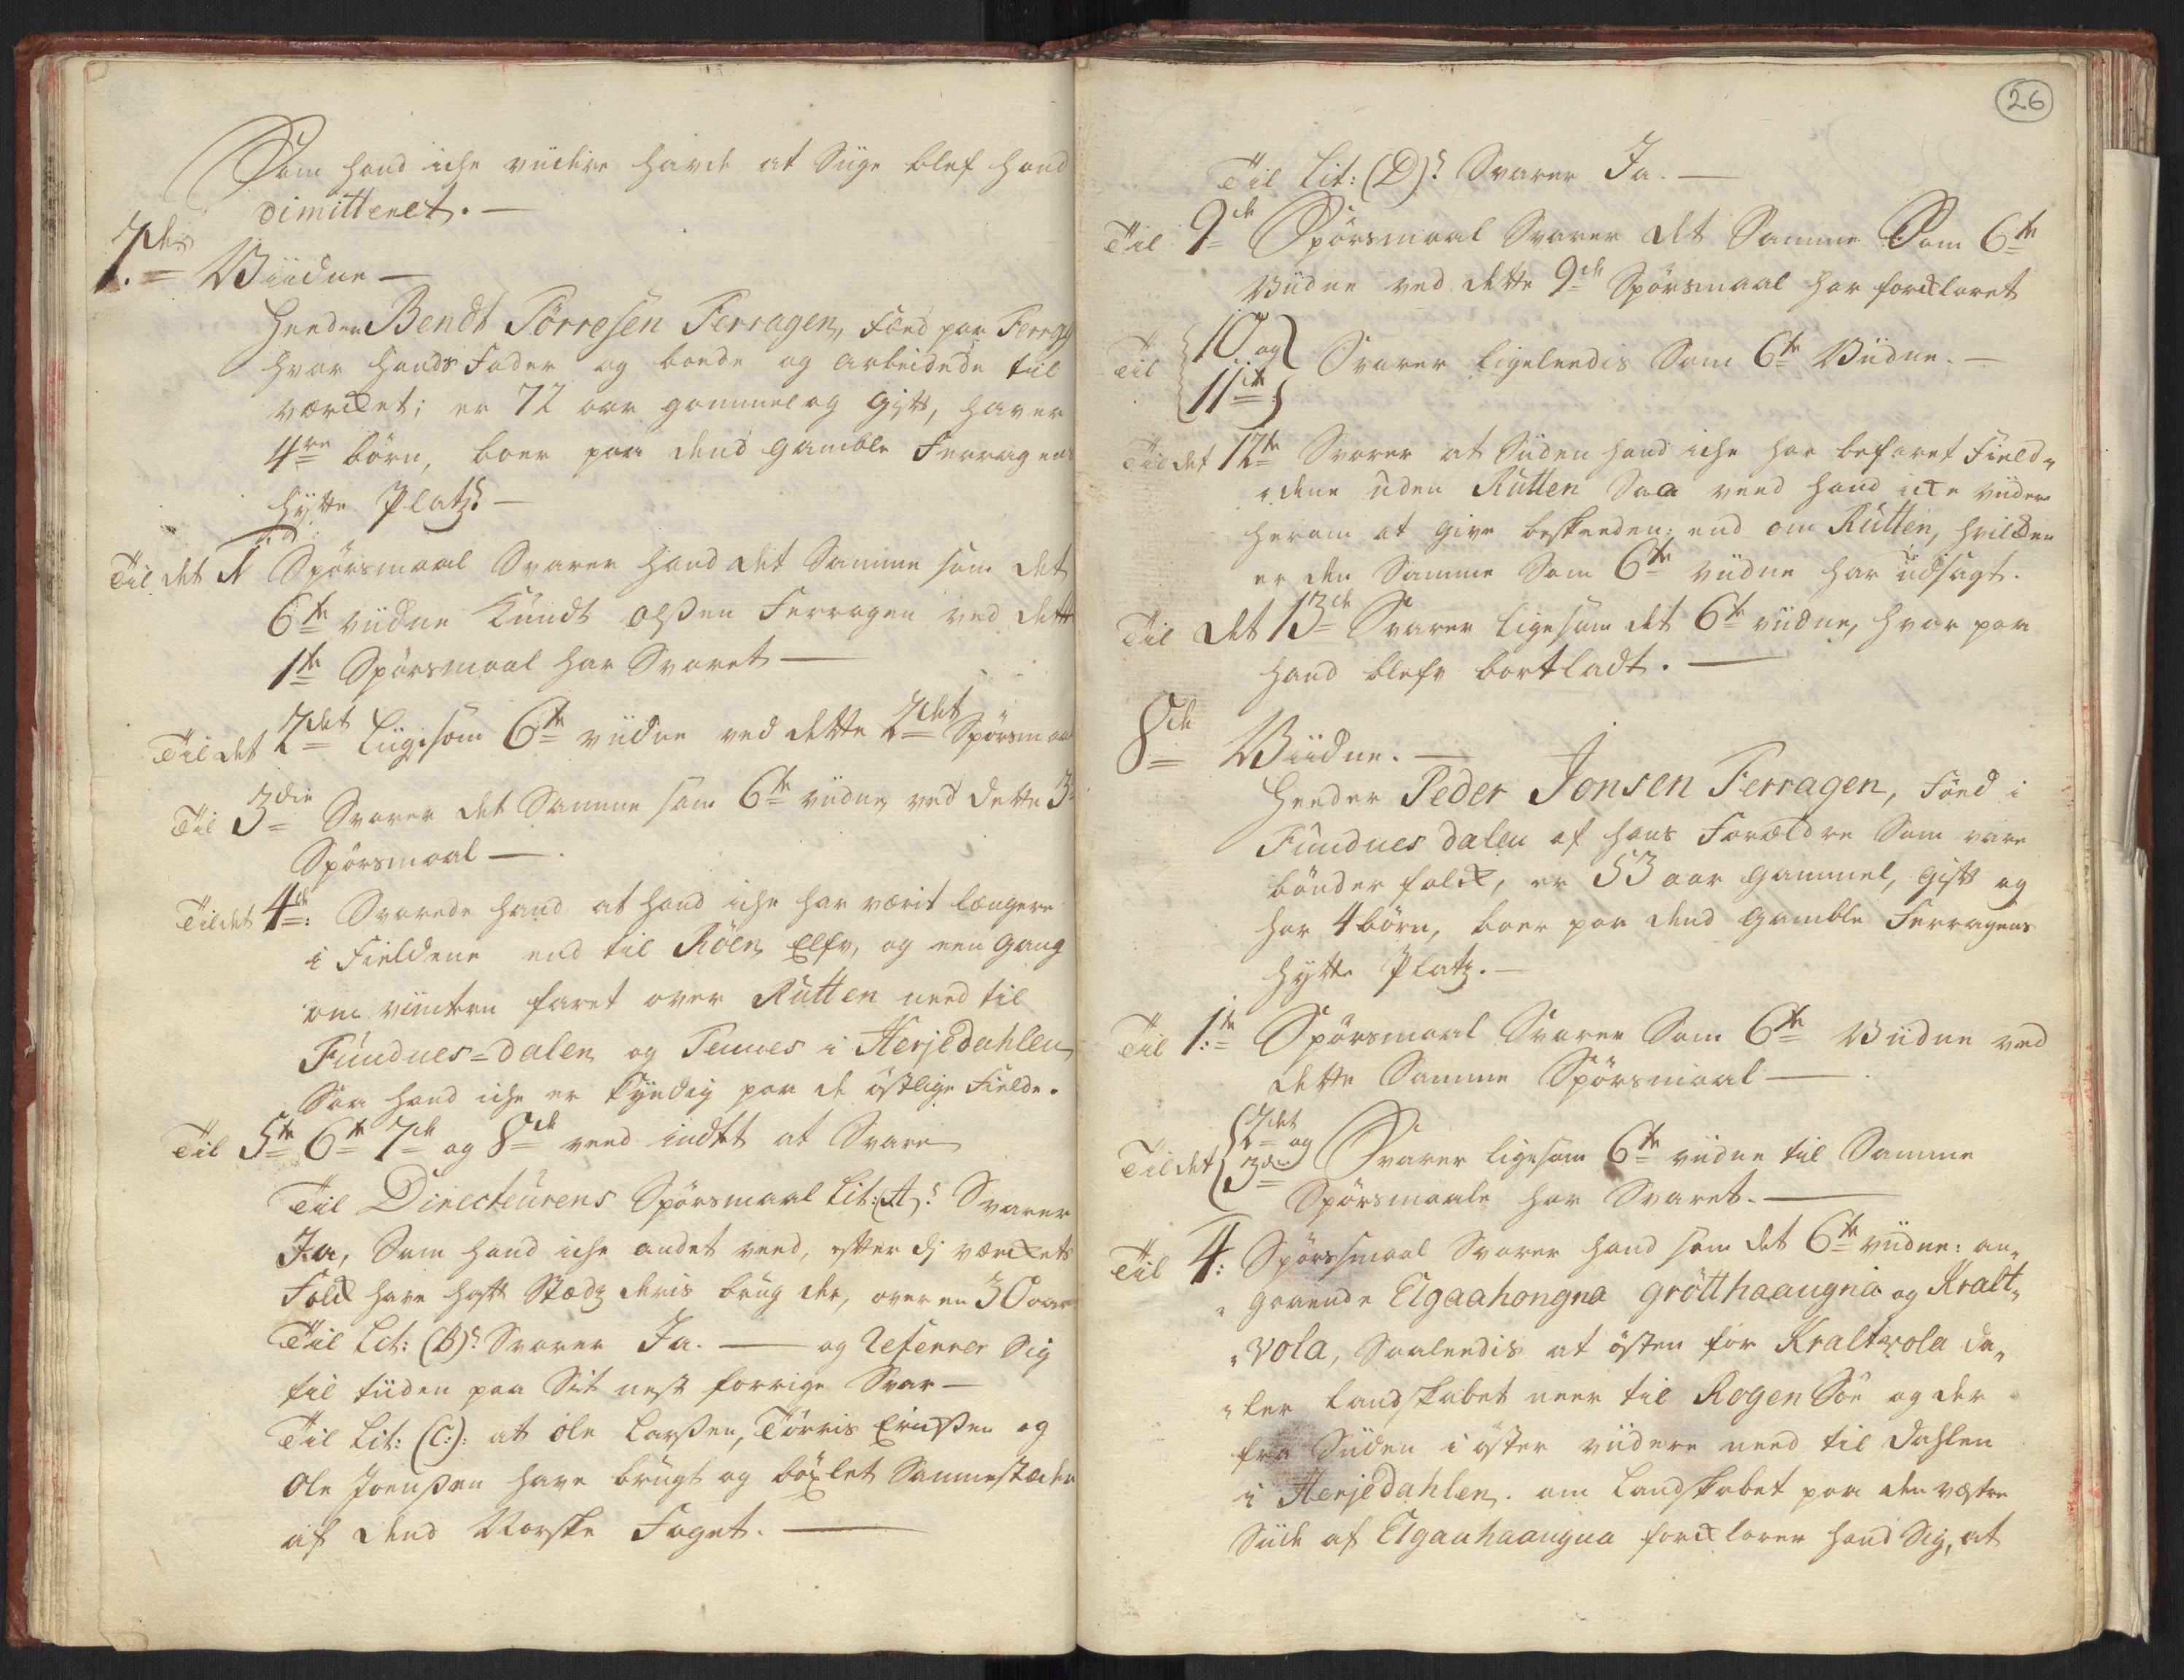 Som hand iche viidere havde at siige blef hand
dimitteret. —
7de
Viidne —
heeder Bendt Törresen Ferragen, född paa Ferrag
hvor hands Fader og boede og arbeidede til
værcket; er 72 aar gammel og gift, haver
4re börn, boer paa dend gamble Ferragens
hytte Platz. —
Til det 1 Spörsmaal Svarer hand det Samme som det
6te viidne Knudt Olßen Ferragen ved dett
1te Spörsmaal har Svaret —
Til det 2det Liigesom 6te viidne ved dette 2det Spörsmaal
Til 3die Svarer det Samme som 6te viidne ved dette 3
Spörsmaal —.
Til det 4de: Svarede hand at hand iche har værit længere
i Fieldene end til Röen Elfv, og een gang
om vinteren faret over Rutten need til
Fundnes=dalen og Tennes i Herjedahlen
Saa hand iche er kyndig paa de östlige Fielde.
Til 5te 6te 7de og 8de veed indtet at Svare
Til Directeurens Spörsmaal Lit: (A): Svarer
Ja, Som hand iche andet veed, efter dj værckets
Folck have hafft Stædz deris brug der, over en 30 aar
Til Lit: (B): Svarer Ja. — og Referrer sig
til tiiden paa Sit nest forrige Svar —
Til Lit: (C:): at Ole Larßen, Törris Erichßen og
Ole Joenßen have brugt og böxlet Sammestæder
af dend Norske Foget. —
26
Til Lit: (D): Svarer Ja. —
Til 9de Spörsmaal Svarer det Samme Som 6te
Viidne ved dette 9de Spörsmaal har forcklaret
Til 10 og
11te Svarer ligeleedis Som 6te Viidne. —
Til det 12te Svarer at Siiden hand iche har befaret Field„
„dene uden Rutten Saa veed hand icke viidere
herom at give beskeeden, end om Rütten, hvilcken
er den Samme Som 6te viidne har udsagt.
Til det 13de Svarer ligesom det 6te viidne, hvor paa
hand blefv bortladt. —
8de
Viidne. —
heeder Peder Jonsen Ferragen, född i
Fundnes dalen af hans Forældre Som vare
bönder folck, er 53 aar gammel, gift og
har 4 börn, boer paa dend gamble Ferragens
hytte Platz. —
Til 1:te Spörsmaal Svarer Som 6te Viidne ved
dette Samme Spörsmaal —.
Til det 2det og
3die Svarer ligesom 6te viidne til Samme
Spörsmaale har Svaret. —
Til 4: Spörssmaal Svarer hand som det 6te viidne: an„
„gaaende Elgaahongna grötthaaugna og Kralt„
„vola, Saaleedis at östen for Kraltvola da„
„ler Landskabet neer til Rogen Söe og der
fra Siiden i öster viidere need til Dahlen
i Herjedahlen. om Landskabet paa den vestre
Siide af Elgaahaaugna forcklarer hand Sig, at